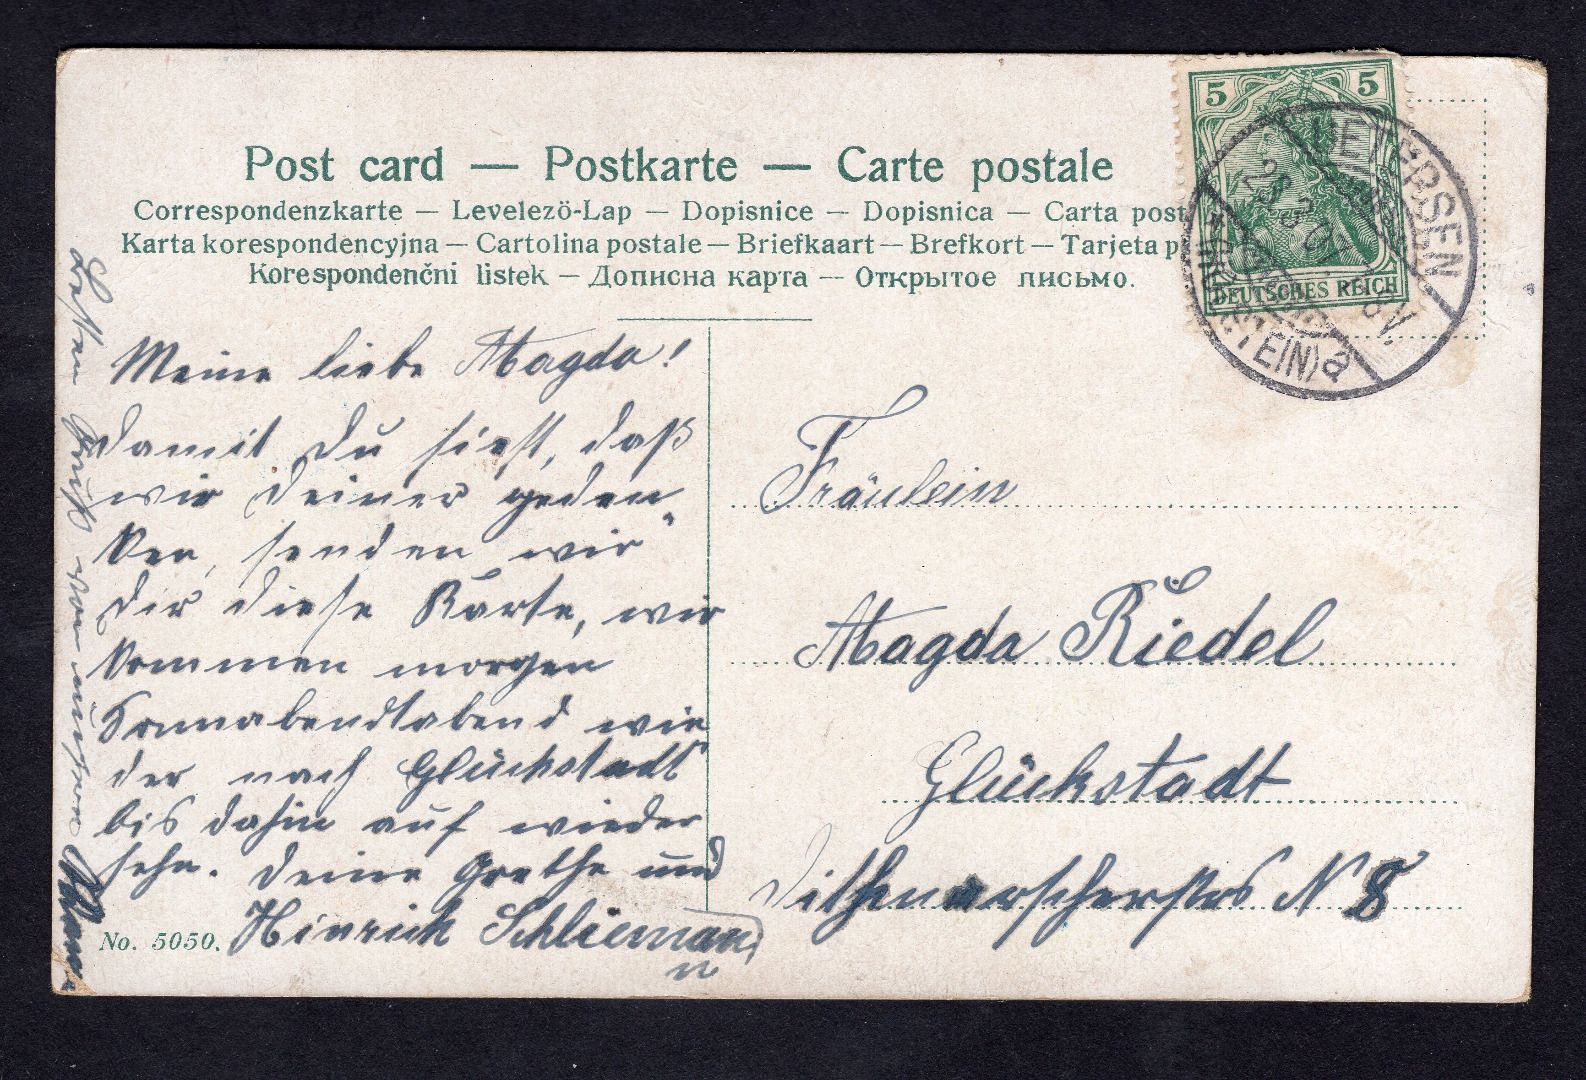 Post card — Postkarte — Carte postale
Correspondenzkarte — Levelező-Lap — Dopisnice — Dopisnica — Carta post
Karta korespondencyjna — Cartolina postale — Briefkaart — Brefkort — Tarjeta p
Korespondenčni listek — Дописна карта — Открытое письмо.
5 5
DEUTSCHES REICH
UETERSEN
28.3.07
(HOLSTEIN) a
Meine liebe Magda!
damit du siehst, daß
wir deiner geden
ken, senden wir
dir diese Karte, wir
kommen morgen
Sonnabendabend wie
der nach Glückstadt
bis dahin auf wieder
sehn. deine Grethe und
Hinrich Schlieman
n
Besten Gruß von unsern
No. 5050.
Fräulein
Magda Riedel
Glückstadt
Dithmarscherstrs N 8